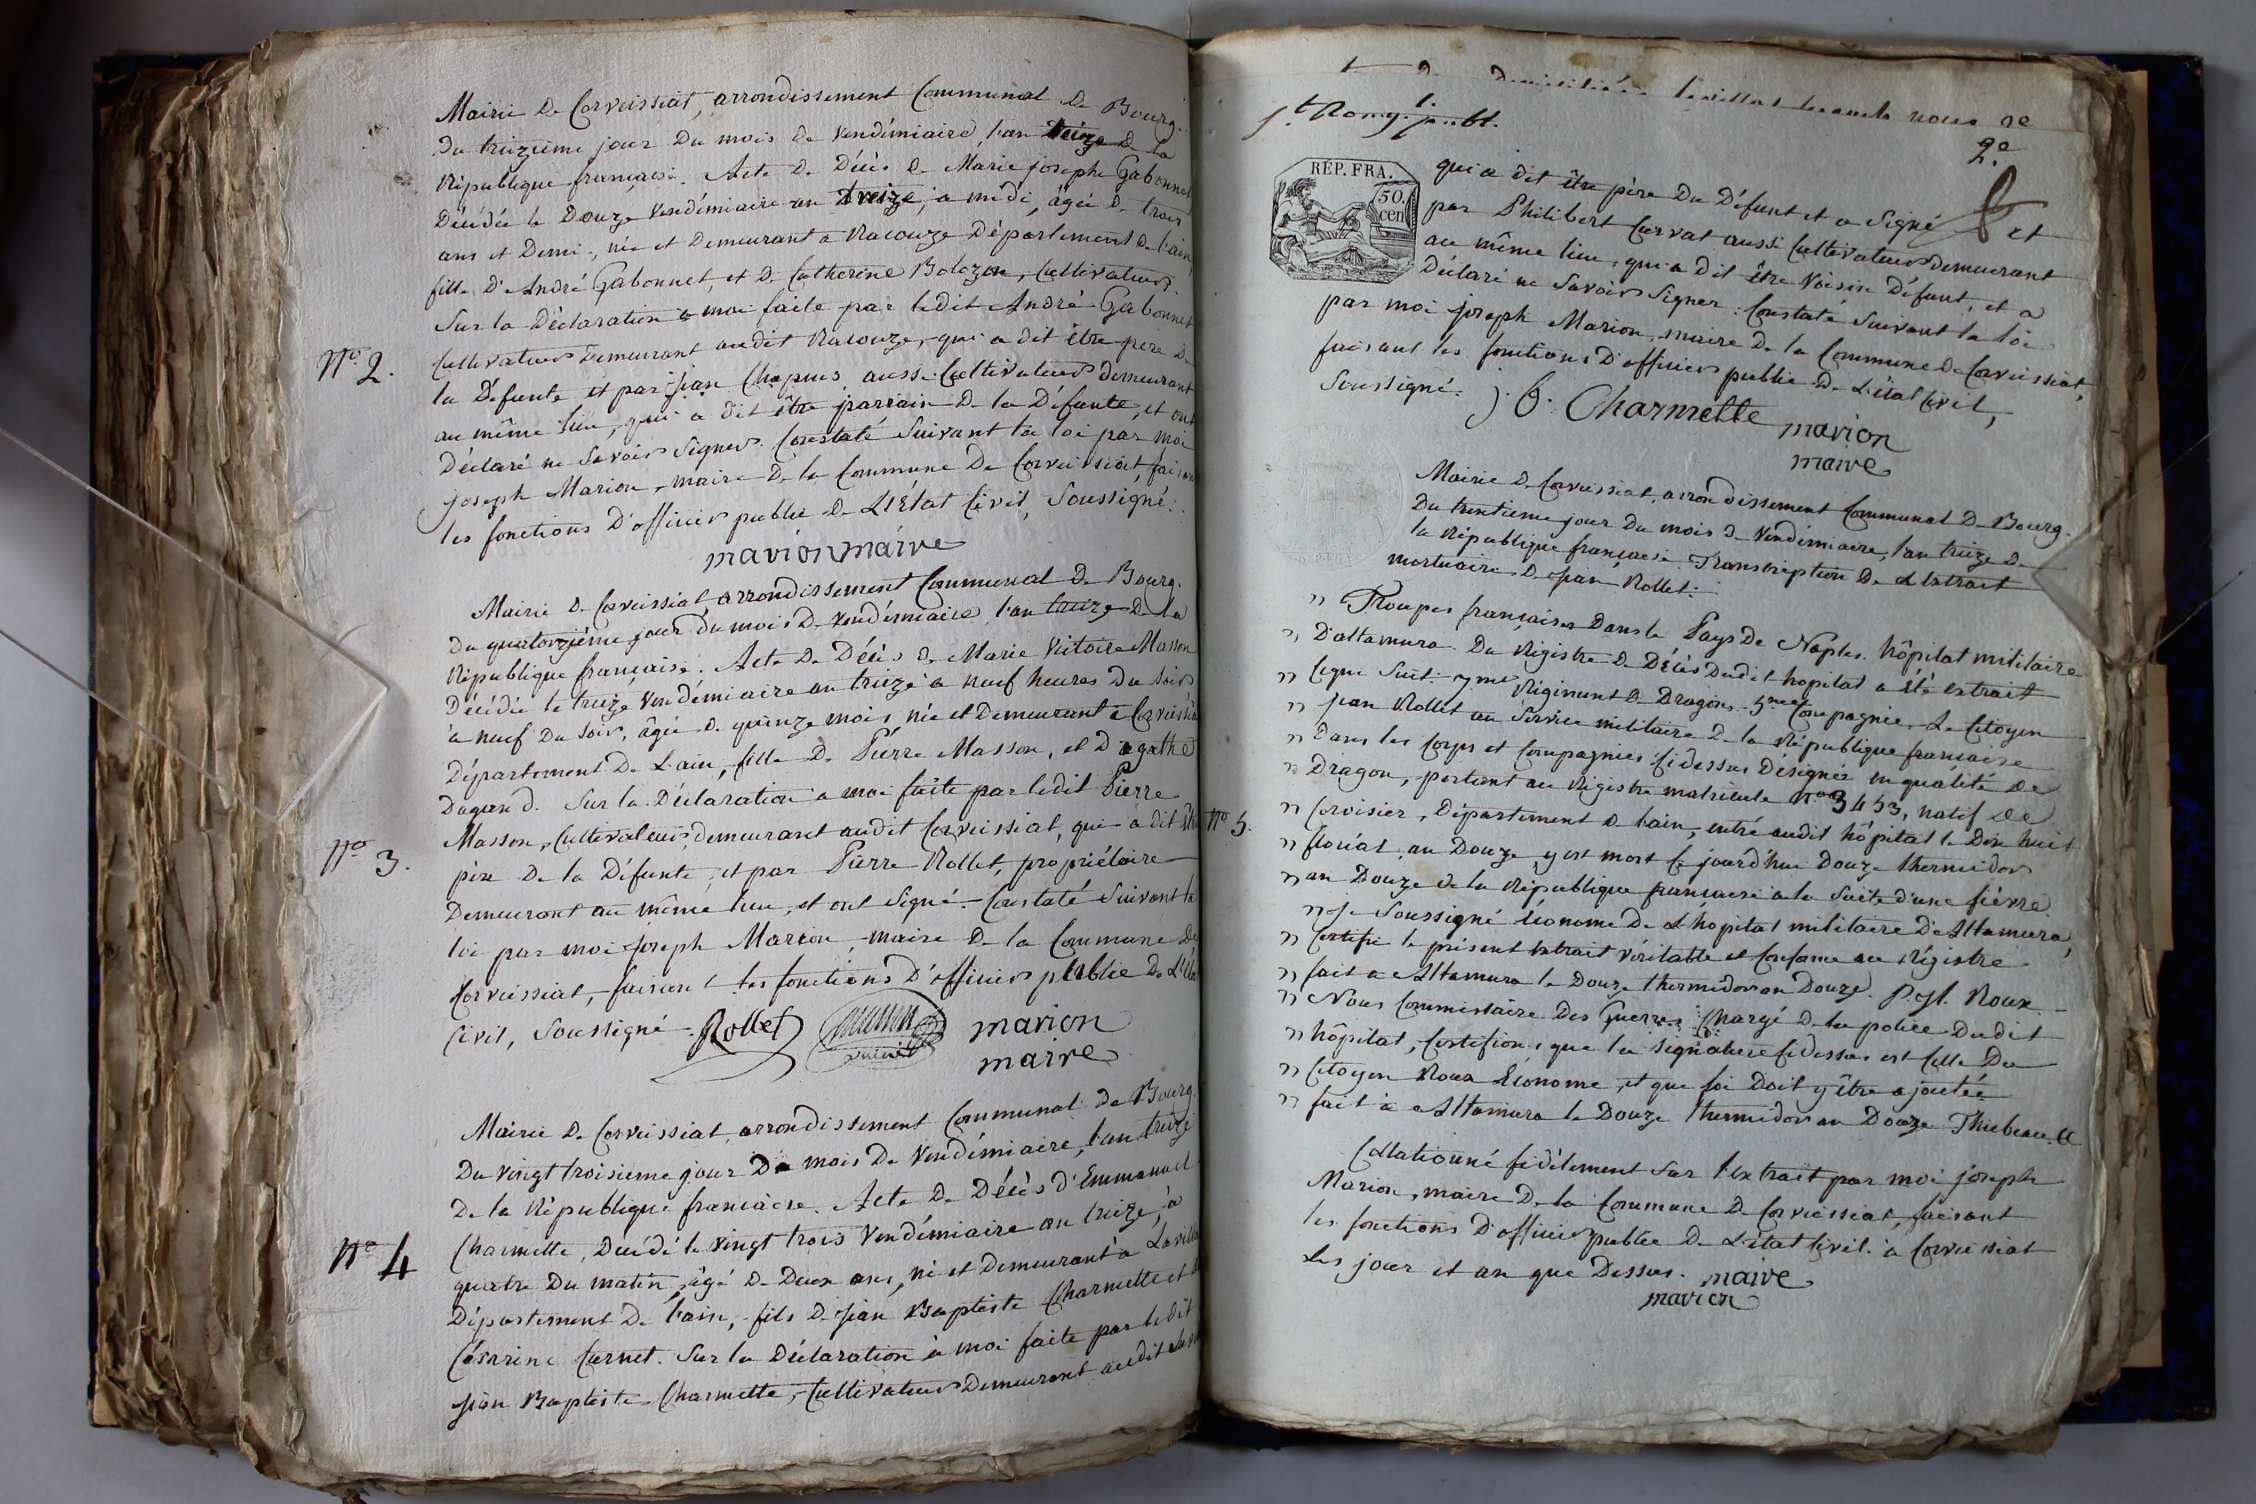 Mairie De Corveissiat, arrondissement Communal De Bourg.
Du treizième jour Du mois de vendémiaire, l'an treize De la
République française. Acte De Décès De Marie josephe Gabonnet,
Décédée le Douze vendémiaire an treize, à midi, âgée De trois
ans et Demi, née et Demeurant à Racouze Département De l'ain,
fille D'André Gabonnet, et De Catherine Bolozon, Cultivateurs.
Sur la Déclaration à moi faite par ledit André Gabonnet
N.° 2.
Cultivateur Demeurant audit Racouze, qui a dit être père De
la Défunte et par jean Chapuis aussi Cultivateur demeurant
au même lieu, qui a dit être parrain De la Défunte, et ont
Déclaré ne Savoir Signer. Constaté Suivant la loi par moi
joseph Marion, maire De la Commune De Corveissiat, faisant
les fonctions D'officier public De L'Etat Civil, Soussigné.
marion maire
Mairie De Corveissiat, arrondissement Communal De Bourg.
Du quatorzième jour Du mois De vendémiaire l'an treize De la
République française. Acte De Décès De Marie Victoire Masson
Décédée le treize vendémiaire an treize à neuf heures Du Soir
à neuf Du Soir, âgée De quinze mois, née et Demeurant à Corveissiat
Département De L'ain, fille De Pierre Masson, et D'agathe
Dagand. Sur la Déclaration à moi faite par ledit Pierre
N.° 3.
Masson, Cultivateur, demeurant audit Corveissiat, qui a dit être
père De la Défunte, et par Pierre Rollet, propriétaire
Demeurant au même lieu, et ont Signé. Constaté Suivant la
loi par moi joseph Marion, maire De la Commune De
Corveissiat, faisant les fonctions D'officier public De L'Etat
Civil, Soussigné. Rollet marion
maire
Mairie De Corveissiat, arrondissement Communal De Bourg.
Du vingt troisième jour Du mois De vendémiaire, l'an treize
De la République française. Acte De Décès D'Emmanuel
N.° 4
Charmette, Décédé le vingt trois vendémiaire an treize, à
quatre Du matin, âgé De Deux ans, né et Demeurant à
Département De l'ain, fils De jean Baptiste Charmette et De
Césarine Curnet. Sur la Déclaration à moi faite par ledit
jean Baptiste Charmette, Cultivateur Demeurant audit
2.e
RÉP. FRA.
50.
cen
qui a dit être père Du Défunt et a Signé et
par Philibert Curvat aussi Cultivateur demeurant
au même lieu, qui a dit être Voisin Défunt, et a
Déclaré ne Savoir Signer. Constaté Suivant la loi
par moi joseph Marion, maire De la Commune De Corveissiat,
faisant les fonctions D'officier public De L'état Civil,
Soussigné. J. B. Charmette marion
maire
Mairie De Corveissiat, arrondissement Communal De Bourg.
Du trentième jour Du mois De vendémiaire, l'an treize De
la République française. Transcription De L'extrait
mortuaire De jean Rollet.
" Troupes françaises Dans le Pays De Naples. hôpital militaire
" D'altamura. Du Régistre De Décès Dudit hopital a été extrait
" Ce que Suit: 7me Régiment De Dragons. 5me Compagnie. Le Citoyen
" jean Rollet au Service militaire De la République française
" dans les Corps et Compagnies Cidessus Désignés en qualité De
" Dragon, portant au Régistre matricule N.° 3453, natif De
N.° 5.
" Corvoisier, Département De l'ain, entré audit hôpital le Dix huit
" floréal an Douze, y est mort Ce jourd'hui Douze thermidor
" an Douze de la République française à la Suite d'une fièvre.
" Je Soussigné Econome De L'hopital militaire D'Altamura,
" Certifie le présent extrait véritable et Conforme au régistre
" fait à Altamura le Douze thermidor an Douze. Roux.
" Nous Commissaire Des Guerres Chargé De la police Dudit
" hôpital, Certifions que la Signature Cidessus est Celle Du
" Citoyen Roux Econome, et que foi Doit y être ajoutée
" fait à Altamura le Douze thermidor an Douze
Collationné fidèlement Sur l'extrait par moi joseph
Marion, maire De la Commune De Corveissiat, faisant
les fonctions D'officier public De L'état Civil. à Corveissiat
Les jour et an que Dessus. maire
marion